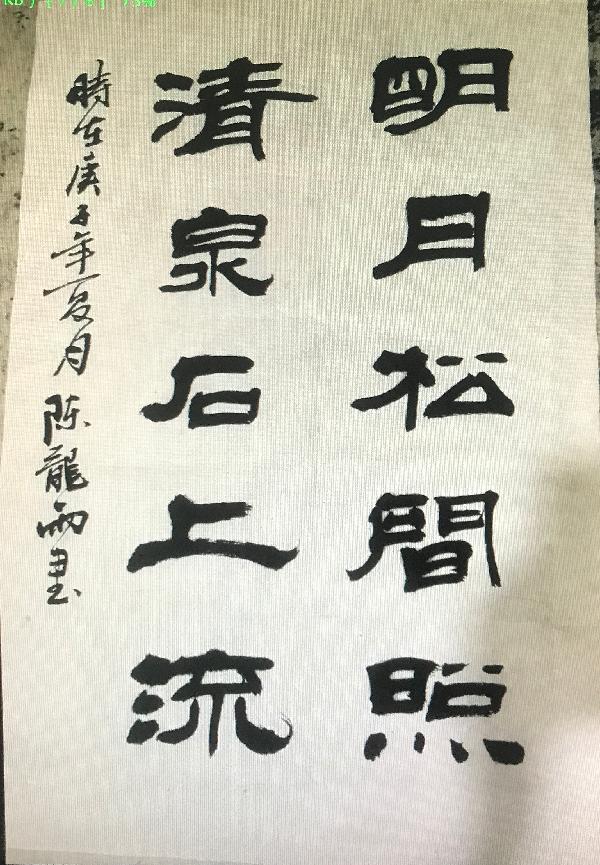 明月松間照
清泉石上流
時在庚子年夏月 陈龍雨書